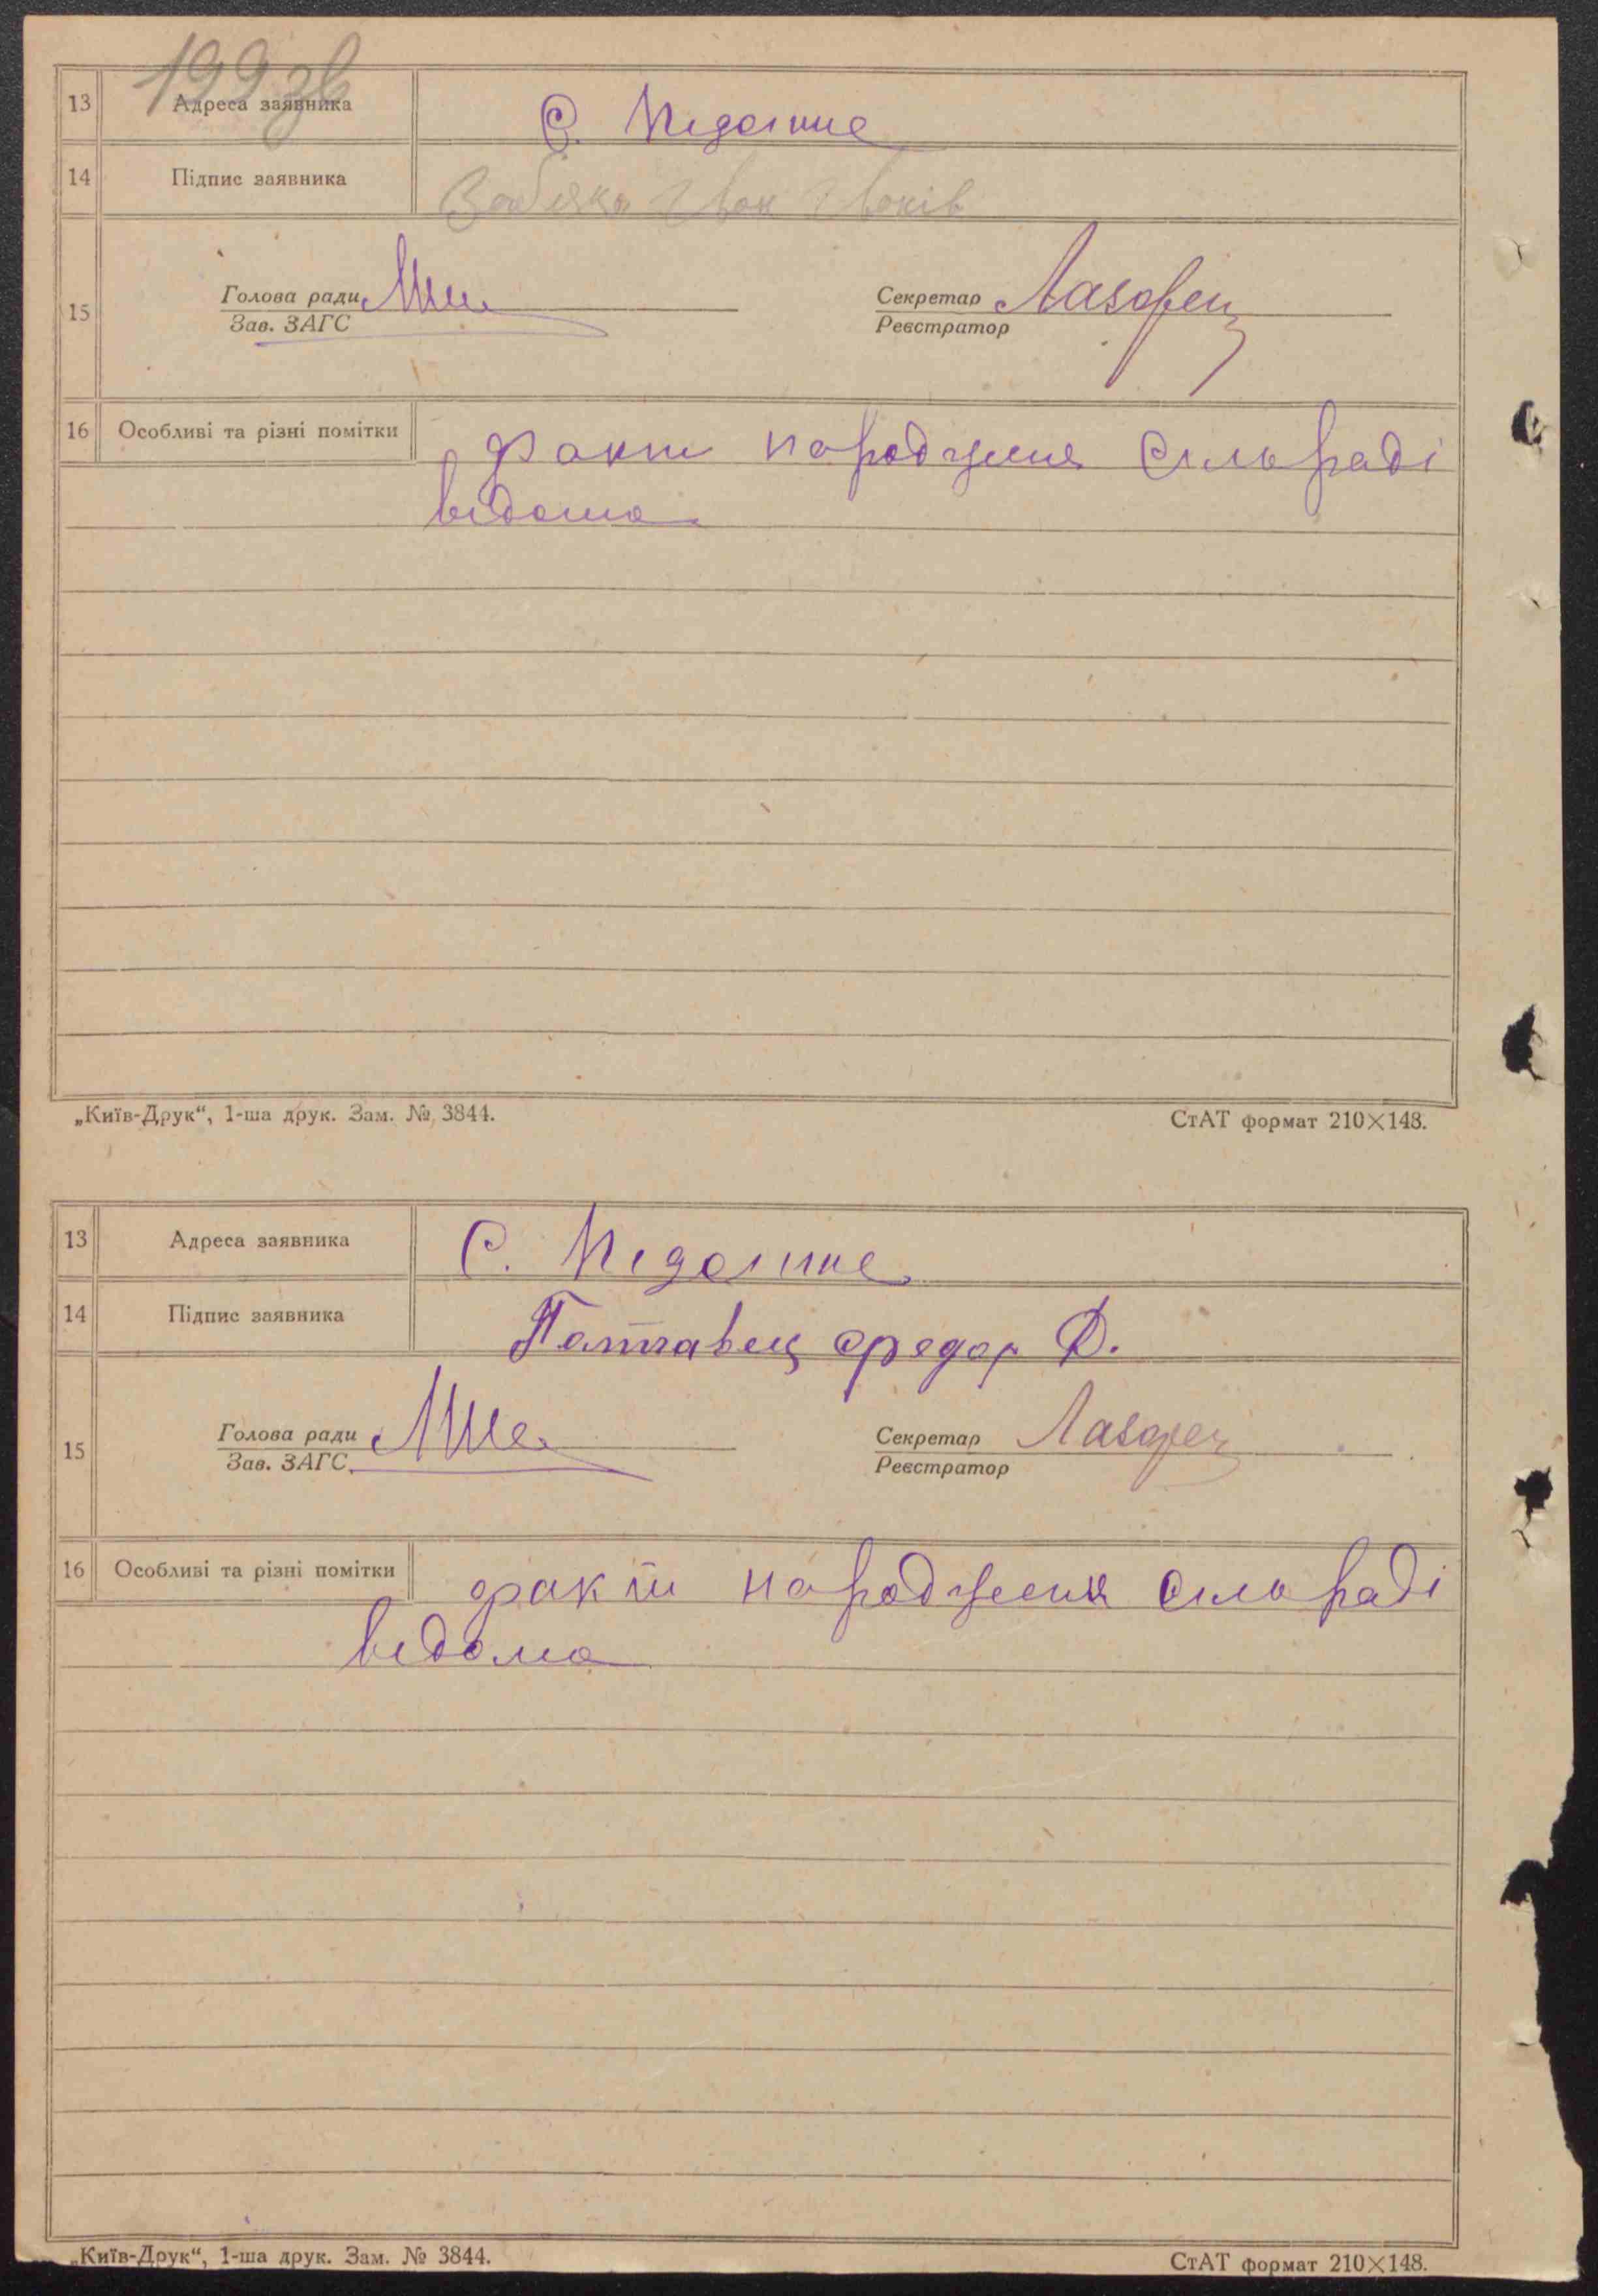 199 зв
13 Адреса заявника С. Підлипне
14 Підпис заявника Іван
15 Голова ради Секретар Лазорец
Зав. ЗАГС Реєстратор
16 Особливі та різні помітки факт народження сільраді
відома
„Київ-Друк“, 1-ша друк. Зам. № 3844. СтАТ формат 210×148.
13 Адреса заявника С. Підлипне
14 Підпис заявника Полтавец Федор Д.
15 Голова ради Секретар Лазорец
Зав. ЗАГС Реєстратор
16 Особливі та різні помітки факт народження сільраді
відома
„Київ-Друк“, 1-ша друк. Зам. № 3844. СтАТ формат 210×148.